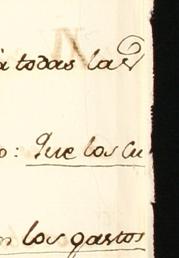 à todas las
o: Que los Cu
n los gastos